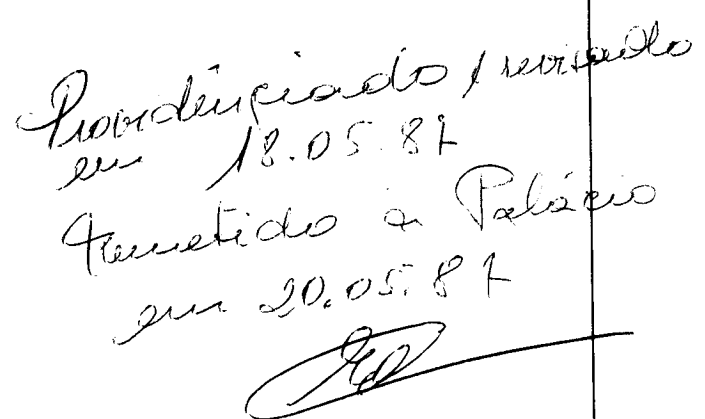 Providenciado / revisado
em 18.05.87
Remetido a Palácio
em 20.05.87